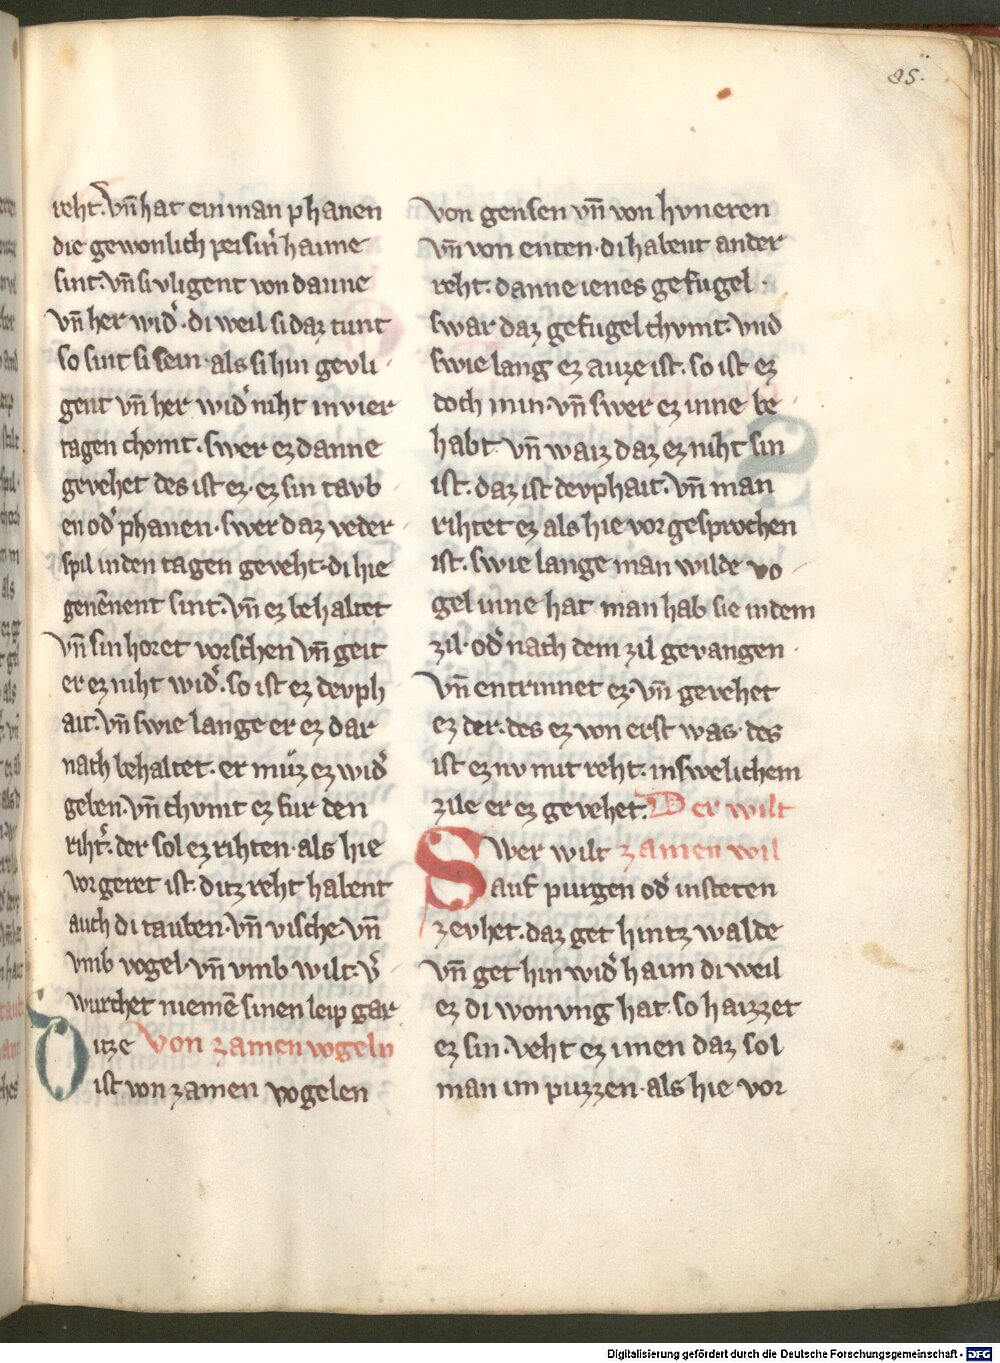 85.
reht. vn̄ hat ein man phanen
die gewonlich pei sin̄ haime
sint. vn̄ si vligent von danne
vn̄ her wid̕. di weil si daz tunt
so sint si sein. als si hin gevli
gent vn̄ her wid̕ niht in vier
tagen chomt. swer ez danne
gevehet des ist ez. ez sin tavb
en od̕ phanen. swer daz veder
spil in den tagen geveht. di hie
genēnent sint. vn̄ ez behaltet
vn̄ sin horet vorschen vn̄ geit
er ez niht wid̕. so ist ez devph
ait. vn̄ swie lange er ez dar
nach behaltet. er mûz ez wid̕
geben. vn̄ chvmt ez fur den
riht̕. der sol ez rihten. als hie
vor geret ist. ditz reht habent
auch di tauben. vn̄ vische. vn̄
vmb vogel. vn̄ vmb wilt. v̕
wurchet niemē sinen leip gar
itze von zamen vogeln
D ist von zamen vogelen
von gensen vn̄ von hvneren
vn̄ von enten. di habent ander
reht. danne ienes gefugel.
swar daz gefugel chvmt. vnd
swie lang ez auze ist. so ist ez
doch min. vn̄ swer ez inne be
habt. vn̄ waiz daz ez niht sin
ist. daz ist devphait. vn̄ man
rihtet ez als hie vor gesprochen
ist. swie lange man wilde vo
gel inne hat man hab sie in dem
zil. od̕ nach dem zil gevangen.
vn̄ entrinnet ez. vn̄ gevehet
ez der. des ez von erst was. des
ist ez nv mit reht. in swelichem
zile er ez gevehet. Der wilt
Swer wilt zamen wil
auf purgen od̕ in steten
zevhet. daz get hintz walde
vn̄ get hin wid̕ haim di weil
ez di wonvng hat. so haizzet
ez sin. veht ez imen daz sol
man im puzzen. als hie vor
Digitalisierung gefördert durch die Deutsche Forschungsgemeinschaft - DFG